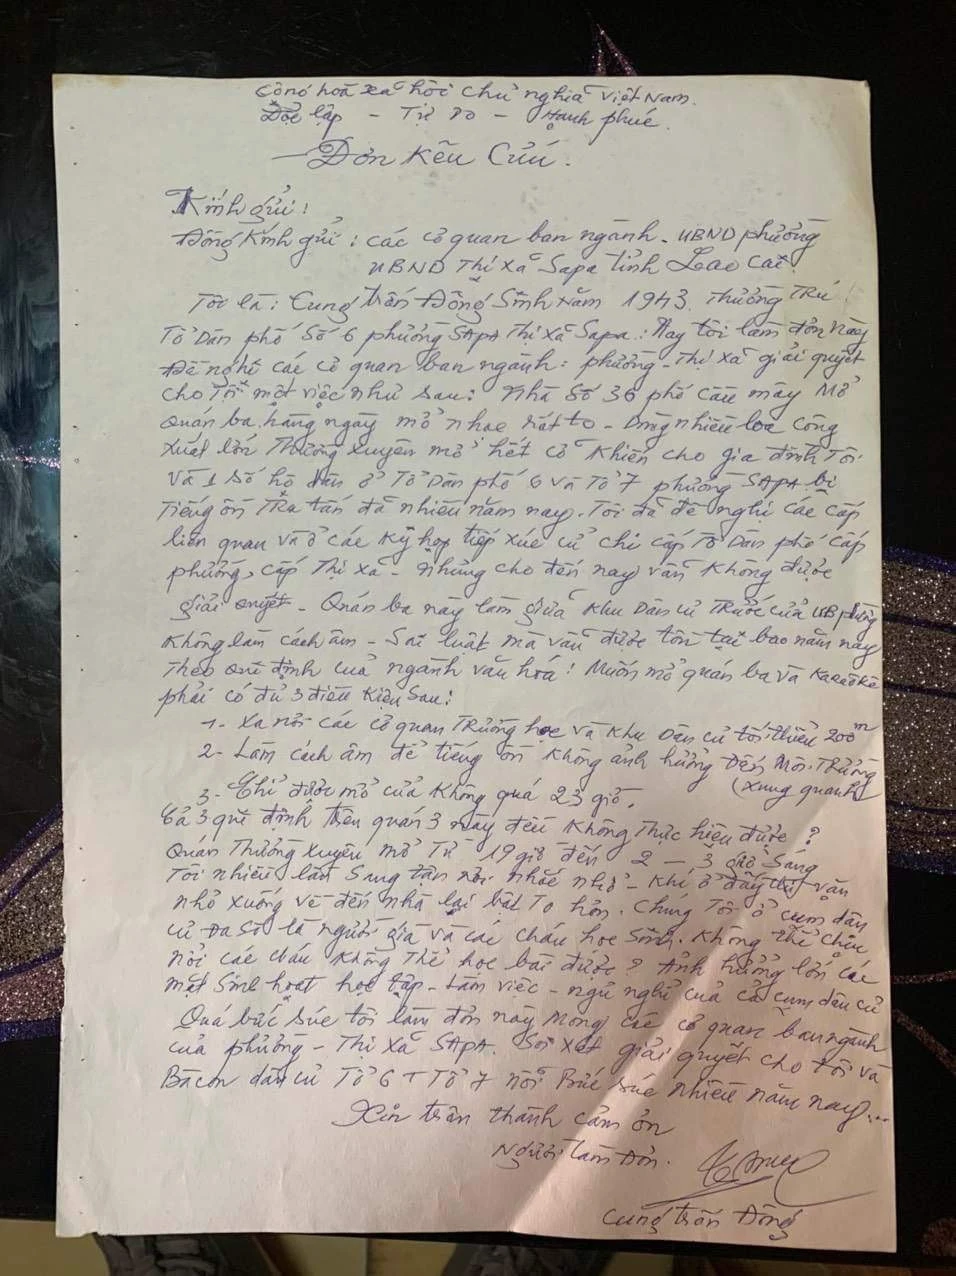 Cộng hoà xã hội chủ nghĩa việt Nam.
Độc lập - Tự Do - Hạnh phúc.
Đơn Kêu Cứu.
Kính gửi:
Đồng Kính gửi: các cơ quan ban ngành. UBND phường
UBND Thị Xã Sapa tỉnh Lao cai.
Tôi là: Cung trần Đông Sinh Năm 1943. Thường Trú
Tổ Dân phố Số 6 phường SAPA Thị Xã Sapa: Nay tôi làm đơn này
Đề nghị các cơ quan ban ngành: phường - Thị Xã giải quyết
cho Tôi một việc như sau: Nhà Số 36 phố cầu mây Mở
Quán ba, hàng ngày mở nhạc rất to - Dùng nhiều loa công
Xuất lớn Thường Xuyên mở hết cỡ Khiến cho gia đình Tôi
Và 1 Số hộ dân ở Tổ Dân phố 6 và Tổ 7 phường SAPA bị
Tiếng ồn Tra tấn đã nhiều năm nay. Tôi đã đề nghị các cấp
liên quan và ở các Kỳ họp tiếp xúc cử chi cấp Tổ Dân phố cấp
phường, cấp Thị Xã - Nhưng cho đến nay vẫn Không được
giải quyết - Quán ba này làm giữa Khu Dân cư Trước cửa UB phường
Không làm cách âm - Sai luật mà vẫn được tồn tại bao năm nay
Theo Qui định của ngành văn hoá! Muốn mở quán ba và Karaôkê
phải có đủ 3 điều Kiện Sau:
1- Xa nơi các cơ quan Trường học và Khu Dân cư tối thiểu 200m
2- Làm cách âm để tiếng ồn Không ảnh hưởng Đến Môi Trường
(xung quanh)
3- Chỉ được mở cửa Không quá 23 giờ.
Cả 3 qui định trên quán 3 này đều Không Thực hiện được?
Quán Thường Xuyên mở Từ 19 giờ đến 2 - 3 giờ Sáng
Tôi nhiều lần Sang tận nơi nhắc nhở - Khi ở đấy thì vặn
nhỏ xuống về đến nhà lại bật To hơn. Chúng Tôi ở cụm dân
cư Đa Số là người già và các cháu học Sinh. Không thể chịu
nổi các cháu Không Thể học bài được? Ảnh hưởng lớn các
mặt Sinh hoạt học tập - Làm việc - ngủ nghỉ của cả cụm dân cư
Quá bức Xúc tôi làm đơn này Mong các cơ quan ban ngành
của phường - Thị Xã SAPA. Soi Xét giải quyết cho tôi và
Bà con dân cư Tổ 6 + Tổ 7 nỗi Bức Xúc nhiều năm nay...
Xin trân thành cảm ơn
Người làm Đơn.
Cung trần Đông